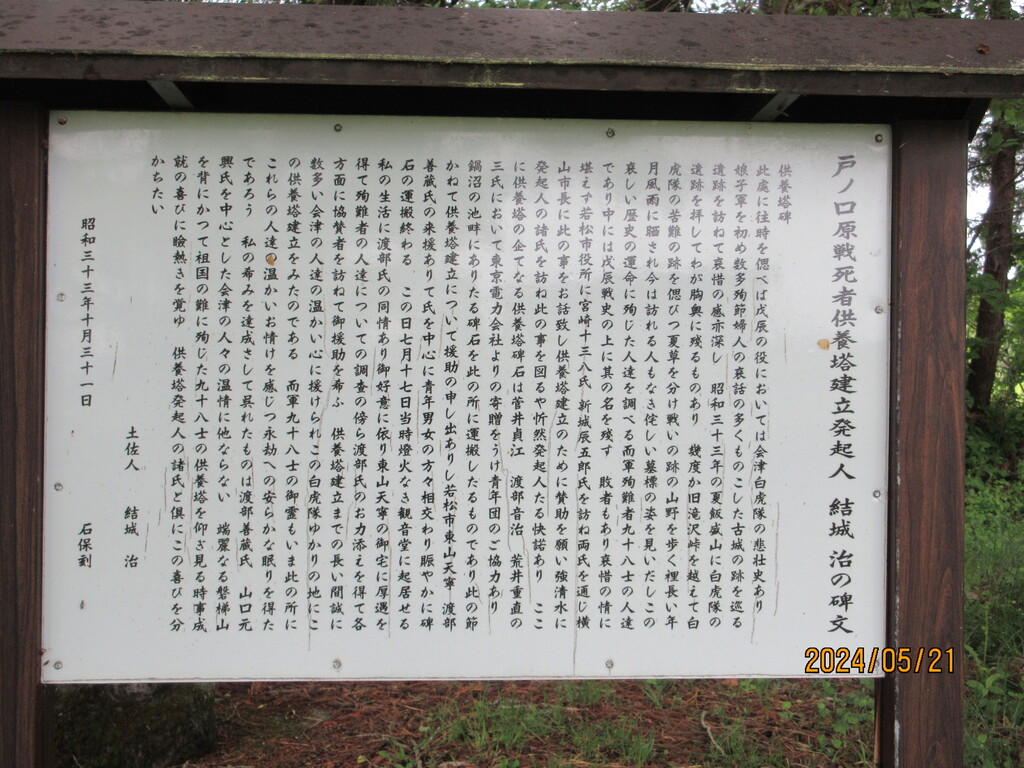 戸ノ口原戦死者供養塔建立発起人 結城 治の碑文
供養塔碑
此處に往時を偲べば戊辰の役においては会津白虎隊の悲壮史あり
娘子軍を初め数多殉節婦人の哀話の多くものこした古城の跡を巡る
遺跡を訪ねて哀惜の感亦深し 昭和三十三年の夏飯盛山に白虎隊の
遺跡を拝してわが胸奥に残るものあり 幾度か旧滝沢峠を越えて白
虎隊の苦難の跡を偲びつ夏草を分け戦いの跡の山野を歩く裡長い年
月風雨に晒され今は訪れる人もなき侘しい墓標の姿を見いだしこの
哀しい歴史の運命に殉じた人達を調べる而軍殉難者九十八士の人達
であり中には戊辰戦史の上に其の名を残す 敗者もあり哀惜の情に
堪えず若松市役所に宮崎十三八氏 新城辰五郎氏を訪ね両氏を通じ横
山市長に此の事をお話致し供養塔建立のために賛助を願い強清水に
発起人の諸氏を訪ね此の事を図るや忻然発起人たる快諾あり ここ
に供養塔の企てなる供養塔碑石は菅井貞江 渡部音治 荒井重直の
三氏において東京電力会社よりの寄贈をうけ青年団のご協力あり
鍋沼の池畔にありたる碑石を此の所に運搬したるものであり此の節
かねて供養塔建立について援助の申し出ありし若松市東山天寧 渡部
善蔵氏の来援ありて氏を中心に青年男女の方々相交わり賑やかに碑
石の運搬終わる この日七月十七日当時燈火なき観音堂に起居せる
私の生活に渡部氏の同情あり御好意に依り東山天寧の御宅に厚遇を
得て殉難者の人達についての調査の傍ら渡部氏のお力添えを得て各
方面に協賛者を訪ねて御援助を希ふ 供養塔建立までの長い間誠に
数多い会津の人達の温かい心に援けられこの白虎隊ゆかりの地にこ
の供養塔建立をみたのである 而軍九十八士の御霊もいま此の所に
これらの人達の温かいお情けを感じつ永劫への安らかな眠りを得た
であろう 私の希みを達成さして呉れたものは渡部善蔵氏 山口元
興氏を中心とした会津の人々の温情に他ならない 端麗なる磐梯山
を背にかつて祖国の難に殉じた九十八士の供養塔を仰ぎ見る時事成
就の喜びに瞼熱きを覚ゆ 供養塔発起人の諸氏と倶にこの喜びを分
かちたい
昭和三十三年十月三十一日
土佐人 結城 治
石保刻
2024/05/21